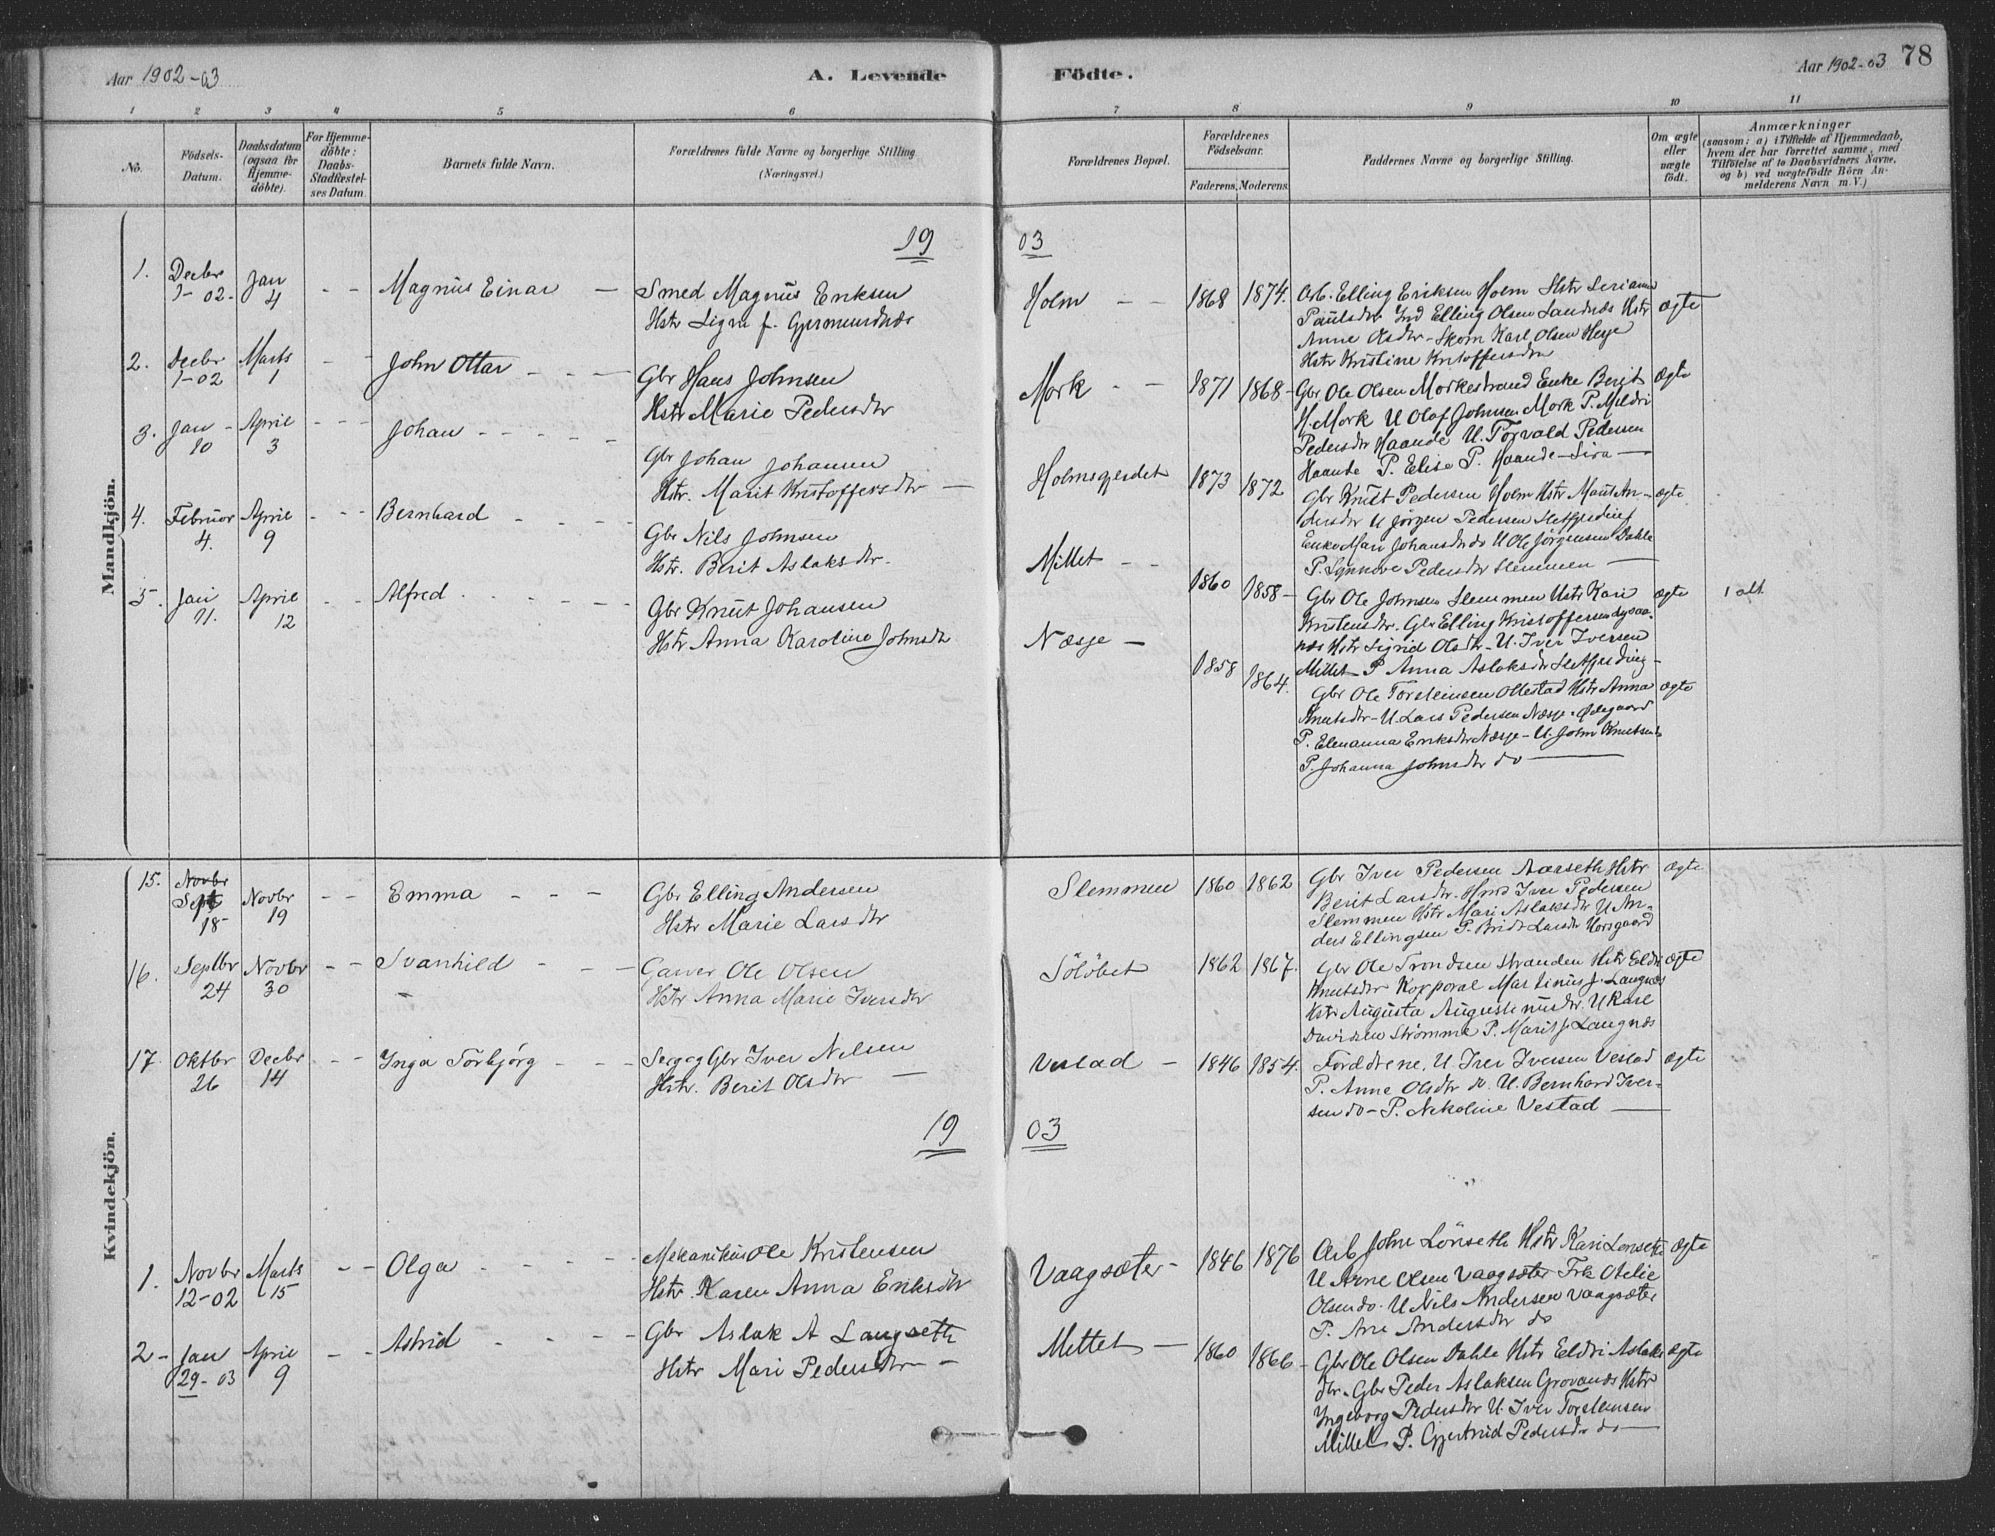 Aar 1902-03
A. Levende
Födte.
Aar 1902-03
78
1 2 3 4 5 6 7 8 9 10 11
No.
Födsels-
Datum.
Daabsdatum
(ogsaa for
Hjemme-
döbte).
For Hjemme-
döbte:
Daabs-
Stadfæstel-
ses Datum.
Barnets fulde Navn.
Forældrenes fulde Navne og borgerlige Stilling
(Næringsvei.)
Forældrenes Bopæl.
Forældrenes
Födselsaar.
Faderens. Moderens.
Faddernes Navne og borgerlige Stilling.
Om ægte
eller
uægte
födt.
Anmærkninger
(saasom: a) i Tilfælde af Hjemmedaab,
hvem der har forrettet samme, med
Tilföielse af to Daabsvidners Navne,
og b) ved uægtefödte Börn An-
melderens Navn m. V.)
Mandkjön.
19 03
1. Decbr
1-02. Jan
4 - - Magnus Einar -
Smed Magnus Eriksen
Hstr Signe f. Gjermundnæs
Holm - - 1868 1874.
Arb. Elling Eriksen Holm Hstr Serianna
Paulsdtr Ind Elling Olsen Sandnæs Hstr
Anne Olsdtr - Skom Karl Olsen Hesje
Hstr Kristine Kristoffersdtr
ægte
2. Decbr
1-02 Marts
1 - - John Ottar - - -
Gbr Hans Johnsen
Hstr Marie Pedersdtr
Mork - - 1871 1868-
Gbr Ole Olsen Morkestrand Enke Berit
H. Mork U Olaf Johnsen Mork P. Mildri
Pedersdtr Haande U. Torvald Pedersen
Haande P. Elise P. Haande - Sira -
ægte
3. Jan -
10 April
3 - - - Johan - - - - -
Gbr Johan Johansen
Hstr. Marit Kristoffersdtr -
Holmsgjerdet 1873 1872
Gbr Knut Pedersen Holm Hstr Marit An-
dersdtr U Jørgen Pedersen Sletfjerding
Enke Mari Johansdtr do U Ole Jörgensen Dahle
P. Synnøve Pedersdtr Slemmen -
ægte
4. Februar
4. April
9 - - - Bernhard - - - -
Gbr Nils Johnsen
Hstr. Berit Aslaksdtr.
Millet - - 1860 1858-
Gbr Ole Johnsen Slemmen Hstr Kari
Kristensdtr. Gbr Elling Kristoffersen
Hstr Sigrid Olsdtr - U. Iver Iversen
Millet - P Anna Aslaksdtr Sletfjerding -
ægte 1 alt
5. Jan
11. April
12 - - Alfred - - - - -
Gbr Knut Johansen
Hstr Anna Karoline Johnsdtr
Næsje - 1858 1864.
Gbr Ole Torsteinsen Ottestad Hstr Anna
Knutsdtr - U. Lars Pedersen Næsje-Ødegaard
P. Elenanna Eriksdtr Næsje - U. John Knutsen do
P. Johanna Johnsdtr do -
ægte
Kvindekjön.
15. Novbr
Sept
18- Novbr
19 - - Emma - - -
Gbr Elling Andersen
Hstr Marie Larsdtr
Slemmen 1860 1862
Gbr Iver Pedersen Aarseth Hstr
Berit Larsdtr. Hmd Iver Pedersen
Slemmen Hstr Mari Aslaksdtr U An-
ders Ellingsen P. Brit Larsdtr Horsgaard
ægte
16. Septbr
24 Novbr
30 - - Svanhild - - -
Garver Ole Olsen
Hstr Anna Marie Iversdtr
Sölöbet 1862 1867.
Gbr Ole Trondsen Stranden Hstr Eldri
Knutsdtr Korporal Martinus J. Langnæs
Hstr Augusta Augustinusdtr. U Karl
Davidsen Strömme P. Marit J. Langnæs
ægte
17. Oktbr
26 Decbr
14 - - Inga Torbjörg - -
Sag og Gbr Iver Nilsen
Hstr. Berit Olsdtr -
Vestad - 1846 1854.
Forældrene, U. Iver Iversen Vestad
P. Anne Olsdtr do. U. Bernhard Iver-
sen do - P. Nekoline Vestad -
ægte
19 03
1. Novbr
12-02 Marts
15 - - Olga - - - -
Mekanikus Ole Kristensen
Hstr. Karen Anna Eriksdtr
Vaagsæter - 1846 1876
Arb John Lönseth Hstr Kari Lönseth
U Arne Olsen Vaagsæter Frk Otelie
Olsen do. U Nils Andersen Vaagsæter
P. Ane Andersdtr do
ægte
2 - Jan
29-03 April
9 - - Astrid - - - -
Gbr Aslak A Langseth
Hstr Mari Pedersdtr -
Mittet - 1860 1866-
Gbr Ole Olsen Dahle Hstr Eldri Aslaks
dtr. Gbr Peder Aslaksen Grovanæs Hstr
Ingeborg Pedersdtr U. Iver Torsteinsen
Millet P. Gjertrud Pedersdtr do -
ægte